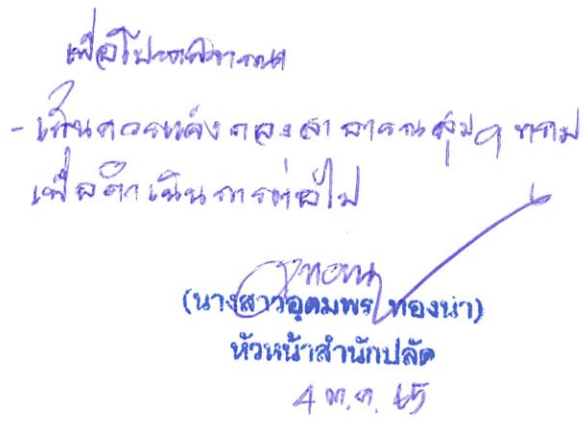 เพื่อโปรดพิจารณา
- เห็นควรแจ้ง กองสาธารณสุขฯ ทราบ
เพื่อดำเนินการต่อไป
(นางสาวอุดมพร ทองนำ)
หัวหน้าสำนักปลัด
4 ต.ค. 65